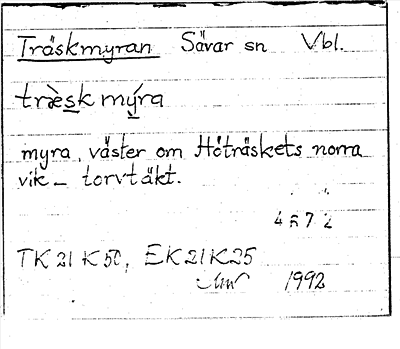 Träskmyran Sävar sn Vbl.
træ̀sk mýra
myra, väster om Höträskets norra
vik – torvtäkt.
4672
TK 21 K 50, EK 21 K 25
1992